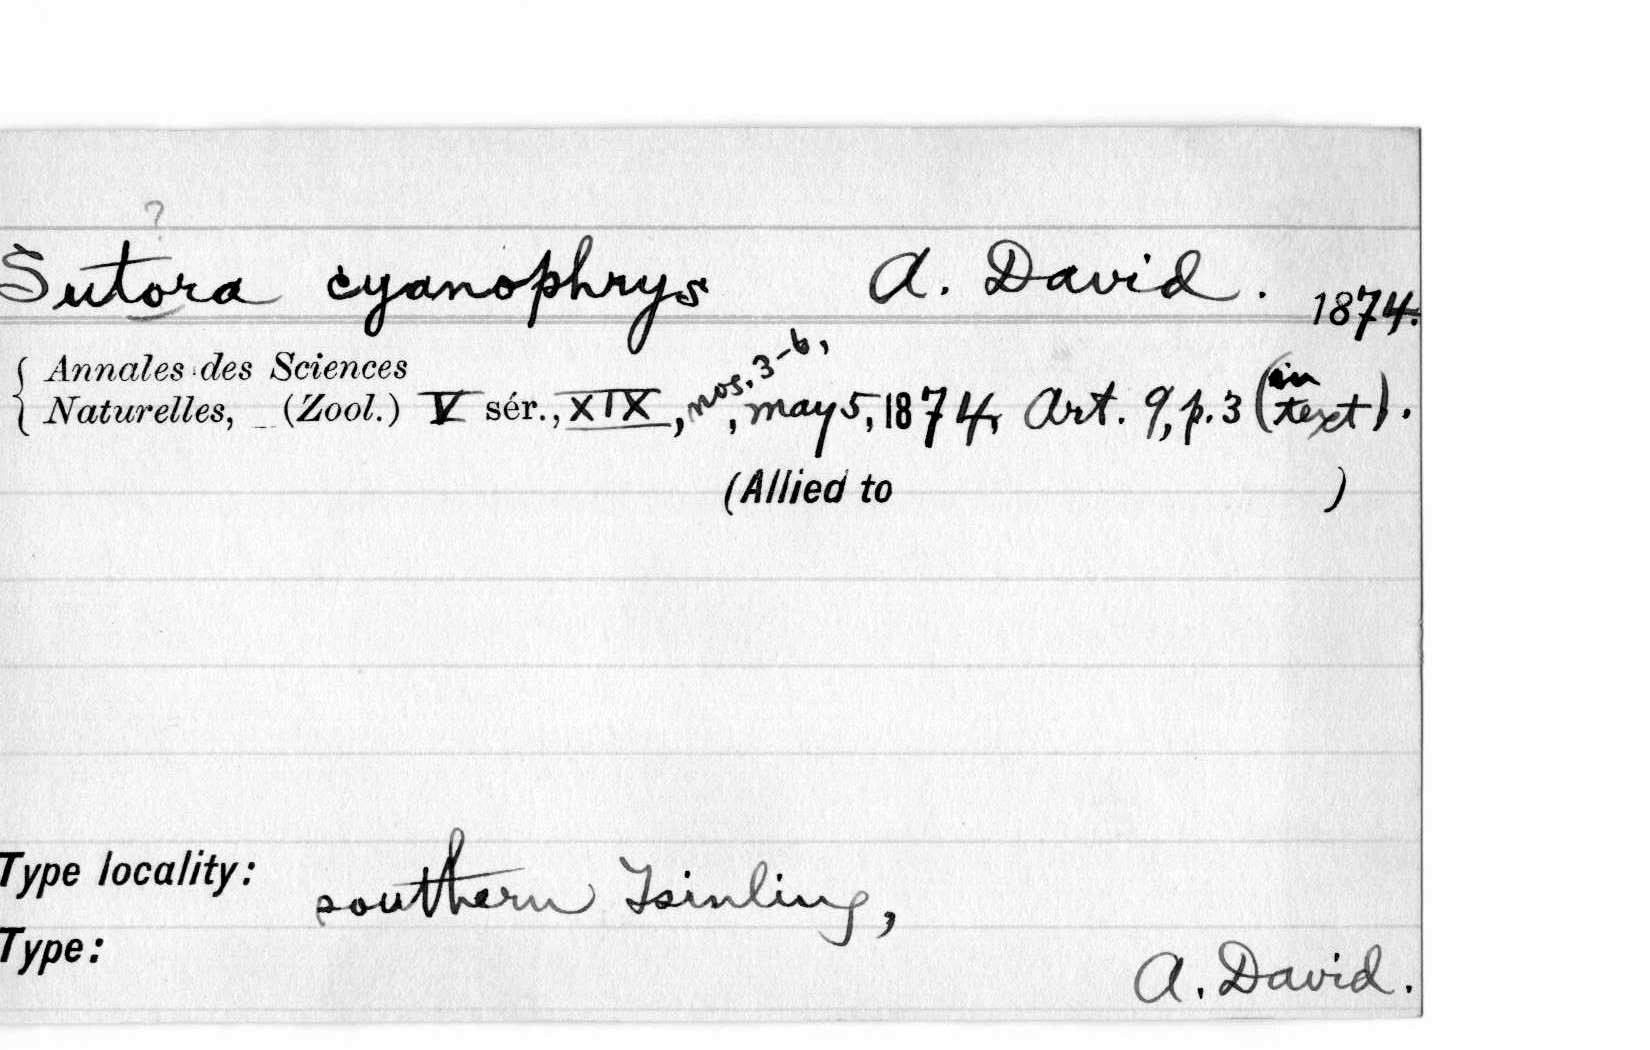 ?
Sutora cyanophrys A. David. 1874.
Annales des Sciences
Naturelles, (Zool.) V sér., XIX, nos. 3-6, , May 5, 1874, Art. 9, p. 3 (in text).
(Allied to )
Type locality: southern Tsinling,
Type:
A. David.